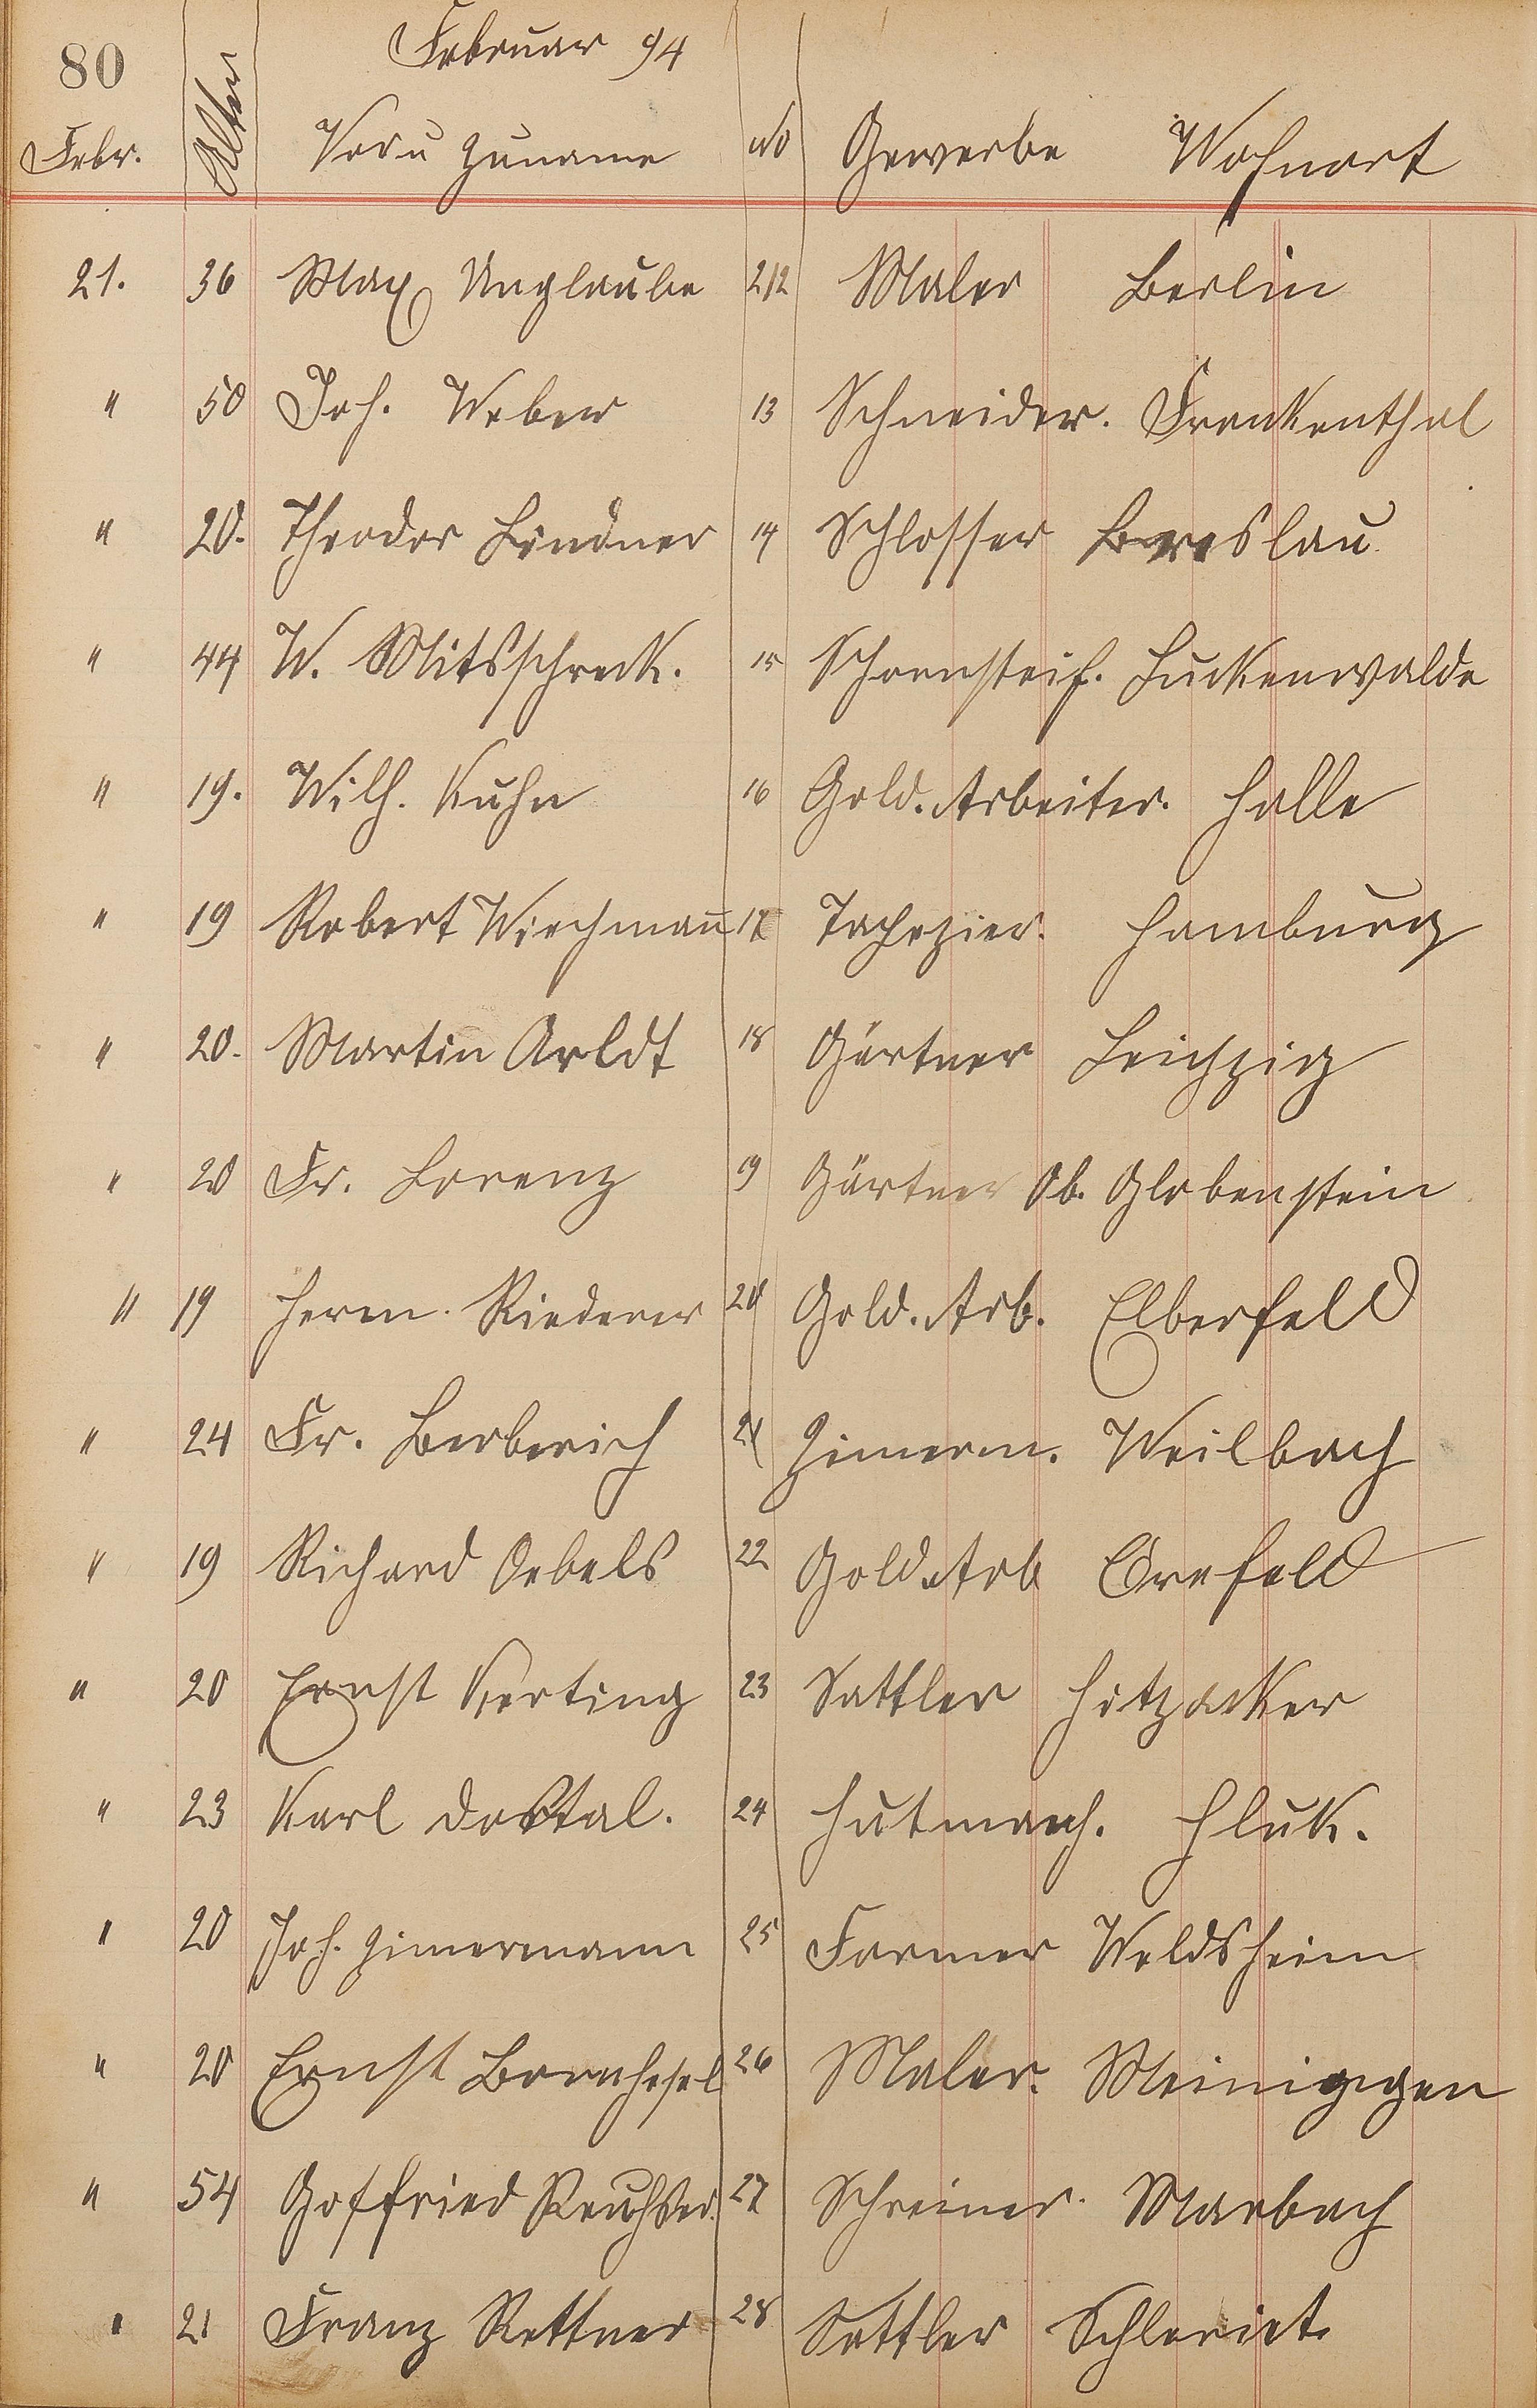 80 Februar 94
Febr. Alter Vor u Zuname No Gewerbe Wohnort
21. 36 Max Unglaube 212 Maler Berlin
" 50 Joh. Weber 13 Schneider. Frankenthal
" 20. Theodor Lindner 14 Schlosser Breslau
" 44 W. Mitsschreck. 15 Schornsteif. Luckenwalde
" 19. Wilh. Kuhn 16 Gold. Arbeiter. Halle
" 19 Robert Wirchmann 17 Tapezier. Hamburg
" 20. Martin Arldt 18 Gärtner Leipzig
" 20 Fr. Lorenz 19 Gärtner Ob. Globenstein
" 19 Herm. Riederer 20 Gold. Arb. Elberfeld
" 24 Fr. Berberich 21 Zimerm. Weilbach
" 19 Richard Oebels 22 Gold. Arb Crefeld
" 20 Ernst Kerting 23 Sattler Hitzacker
" 23 Karl Dostal. 24 Hutmach. Hluk.
" 20 Joh. Zimermann 25 Former Weldsheim
" 20 Ernst 26 Maler. Meinigegen
" 54 Gottfried 27 Schreiner. Marbach
" 21 Franz Rettner 28 Sattler Schleriet.